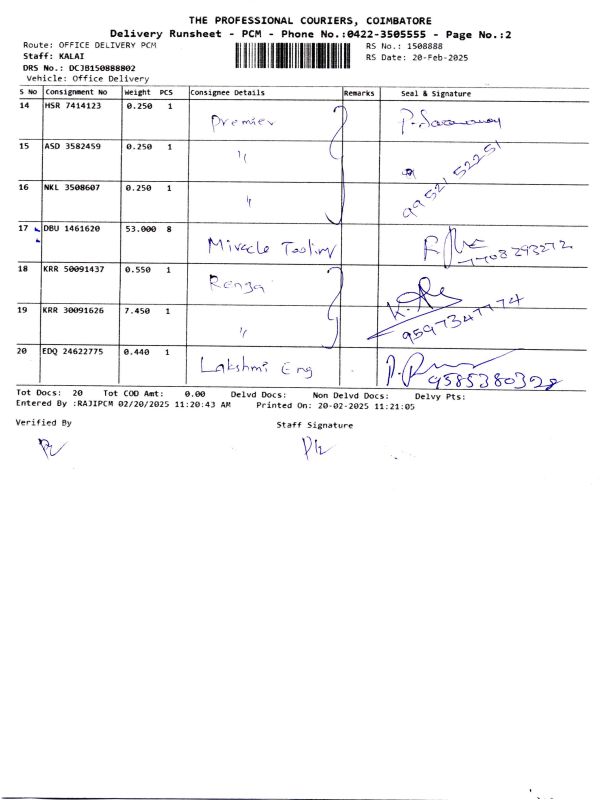 THE PROFESSIONAL COURIERS, COIMBATORE
Delivery Runsheet - PCM - Phone No.:0422-3505555 - Page No.:2
Route: OFFICE DELIVERY PCM RS No.: 1508888
Staff: KALAI RS Date: 20-Feb-2025
DRS No.: DCJB150888802
Vehicle: Office Delivery
S No Consignment No Weight PCS Consignee Details Remarks Seal & Signature
14 HSR 7414123 0.250 1 Premier
15 ASD 3582459 0.250 1 "
99521 52251
16 NKL 3508607 0.250 1 "
17 DBU 1461620 53.000 8 Miracle Tooling
7708293272
18 KRR 50091437 0.550 1 Renga
19 KRR 30091626 7.450 1 "
9597347774
20 EDQ 24622775 0.440 1 Lakshmi Eng
9585380328
Tot Docs: 20 Tot COD Amt: 0.00 Delvd Docs: Non Delvd Docs: Delvy Pts:
Entered By :RAJIPCM 02/20/2025 11:20:43 AM Printed On: 20-02-2025 11:21:05
Verified By Staff Signature